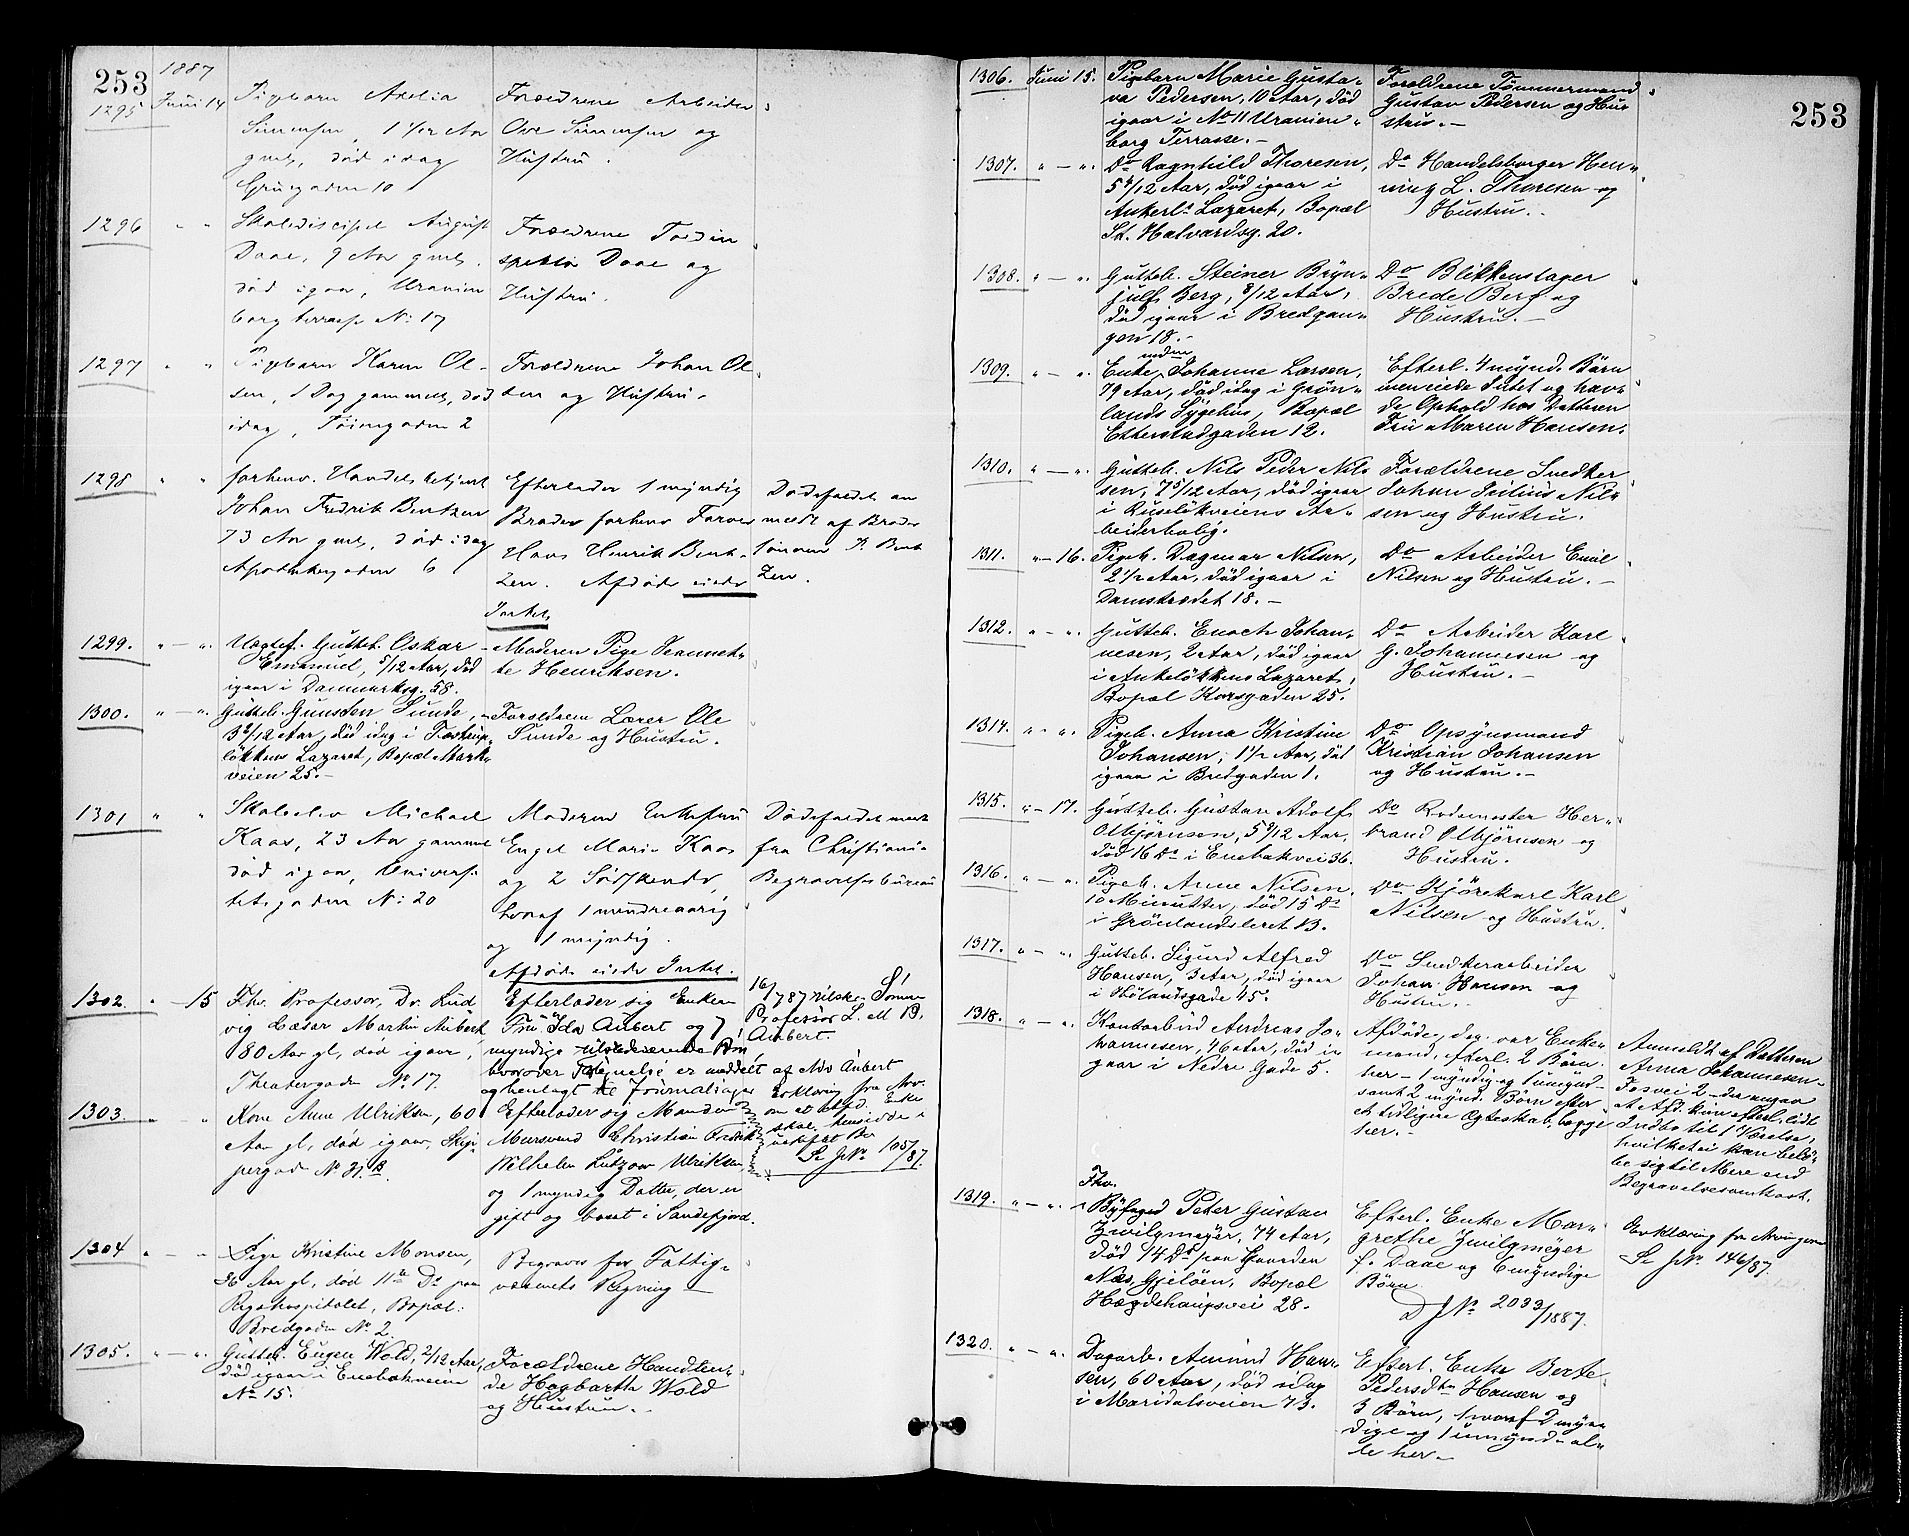 253
1887
1295 Juni 14
Pigebarn Axelia
Simensen, 1 1/12 Aar
gml, død idag
Grügaden 10
Forældrene Arbeider
Ove Simensen og
Hustru.
1296 " "
Skolediscipel August
Daae, 9 Aar gml.
død igaar, Uranien
borg terrasse No 17
Forældrene Toldin
spektør Daae og
Hustru.
1297 " "
Pigebarn Karen Ol-
sen, 1 Dag gammel, død
idag,
Forældrene Johan Ol
sen og Hustru.
1298 " "
forhenv. Handelsbetjent
Johan Fredrik Bentzen
73 Aar gml, død idag
Apothekergaden 6
Efterlader 1 myndig
Broder forhenv Farver
Hans Henrik Bent-
zen. Afdøde eiede
Intet,
Dødsfaldet an
meldt af Broder
sønnen P. Bent
zen.
1299. " — ".
Uægtef. Gutteb. Oskar
Emanuel, 5/12 Aar, død
igaar i Danmarksg. 58.
Moderen Pige Jeannet-
te Henriksen.
1300. " — ".
Gutteb. Gunsten Sunde,
død idag i
løkkens Lazaret, Bopæl Mark-
veien 25.—
Forældrene Lærer Ole
Sunde og Hustru.
1301 " "
Michael
Kaas, 23 Aar gammel
død igaar, Universi
tetsgaden No 20
Moderen Enkefru
Engel Marie Kaas
og 2 Sødskende,
hvoraf 1 mindreaarig
og 1 myndig.
Afdøde eiede Intet.
Dødsfaldet meldt
fra Christiania
Begravelsesbureau
1302. " — 15
Fhv. Professor, Dr. Lud
vig Cæsar Martin Aubert,
80 Aar gl, død igaar,
Theatergaden No 17.
Efterlader sig Enken
Fru Ida Aubert og 7
myndige tilstedeværende Børn
hvorover Fortegnelse er meddelt af Adv Aubert
og henlagt til Journalsager
16/7 87 Sønnen
Professor L. M B.
Aubert.
1303. " "
Kone Anne Ulriksen, 60
Aar gl, død igaar, Skip
pergade No 31.B.
Efterlader sig Manden
Maursvend Christian Fredrik
Wilhelm Lützow Ulriksen,
og 1 myndig Datter, der er
gift og bosat i Sandefjord.
Erklæring fra Arv.
om at Afd. Enke
skal hensidde i
uskiftet Bo
Se JNo 105/87.
1304 " — "
Pige Kristine Monsen,
36 Aar gl, død 11te Ds paa
Rigshospitalet, Bopæl:
Bredgaden No 2.
Begraves for Fattig-
væsenets Regning —
1305. " — ".
Gutteb. Eugen Wold, 2/12 Aar,
død igaar i Enebakveien
No 15.
Forældrene Handlen-
de Hagbarth Wold
og Hustru.
253
1306. Juni 15.
Pigebarn Marie Gusta-
va Pedersen, 10 Aar, død
igaar i No 11 Uranien-
borg Terrasse.—
Forældrene Tømmermand
Gustav Pedersen og Hu-
stru.—
1307. " — ".
Do Ragnhild Thoresen,
død igaar i
Ankerl. Lazaret, Bopæl
St. Halvardsg. 20.
Do Handelsborger Hen-
ning L. Thoresen og
Hustru.
1308. " — ".
Gutteb. Steiner Bryn-
julf Berg, 8/12 Aar,
død igaar i Bredgan-
gen 18.—
Do Blikkenslager
Brede Berg og
Hustru.—
1309. " — ".
Enke Johanne Larsen,
79 Aar, død idag i Grøn-
lands Sygehus, Bopæl
Etterstadgaden 12.
Efterl. 4 mynd. Børn
men eiede Intet og hav-
de Ophold hos Datteren
Fru Maren Hansen.
1310. " — ".
Gutteb. Nils Peder Nils
sen, 7 5/12 Aar, død igaar
i Ruseløkveiens Ar-
beiderbolig.
Forældrene Snedker
Johan Julius Nils-
sen og Hustru.
1311. " — 16.
Pigeb. Dagmar Nilsen,
2 1/2 Aar, død igaar i
Damstrædet 18.—
Do Arbeider Emil
Nilsen og Hustru.—
1312. " — ".
Gutteb. Enoch Johan-
nesen, 2 Aar, død igaar
i Ankeløkkens Lazaret,
Bopæl Korsgaden 25.
Do Arbeider Karl
G. Johannesen og
Hustru.—
1314. " — ".
Pigeb. Anna Kristine
Johansen, 1 1/2 Aar, død
igaar i Bredgaden 1.
Do Opsynsmand
Kristian Johansen
og Hustru.—
1315. " — 17.
Gutteb. Gustav Adolf
Olbjørnsen, 5 9/12 Aar,
død 16 Ds i Enebakvei 36.
Do Rodemester Her-
brand Olbjørnsen og
Hustru.
1316. " — ".
Pigeb. Anne Nilsen.
10 Minutter, død 15 Ds
i Grønlandsleret 13.
Do Kjørekarl Karl
Nilsen og Hustru.
1317. " — ".
Gutteb. Sigurd Alfred
Hansen, 3 Aar, død igaar
i Hølandsgade 45.
Do Snedkerarbeider
Johan Hansen og
Hustru.
1318. " — ".
Kontorbud Andreas Jo-
hannesen, 46 Aar, død i-
gaar i Nedre Gade 5.
Afdøde, der var Enke-
mand, efterl. 2 Børn
her — 1 myndig og 1 umynd-
samt 2 mynd. Børn efter
et tidligere Ægteskab, begge
her.—
Anmeldt af Datteren
Anna Johannesen
Fosvei 2 — der angav
at Afd. kun efterl. lidt
Indbo til 1 Værelse,
hvilket ei kan belø-
be sig til Mere end
Begravelsesomkost.
1319. " — ".
Fhv.
Byfoged Peter Gustav
Zwilgmeyer, 74 Aar,
død 14 Ds paa Gaarden
Næs, Gjeløen, Bopæl
Hægdehaugsvei 28.
Efterl. Enke Mar-
grethe Zwilgmeyer
f. Daae og 6 myndige
Børn.
D JNo 2033/1887.
Erklæring fra Arvingerne
Se JNo 146/87.
1320. " — ".
Dagarb. Amund Han-
sen, 60 Aar, død idag
i Maridalsveien 73.
Efterl. Enke Berte
Pedersdtr Hansen og
3 Børn, hvoraf 2 myn-
dige og 1 umynd — al-
le her.—